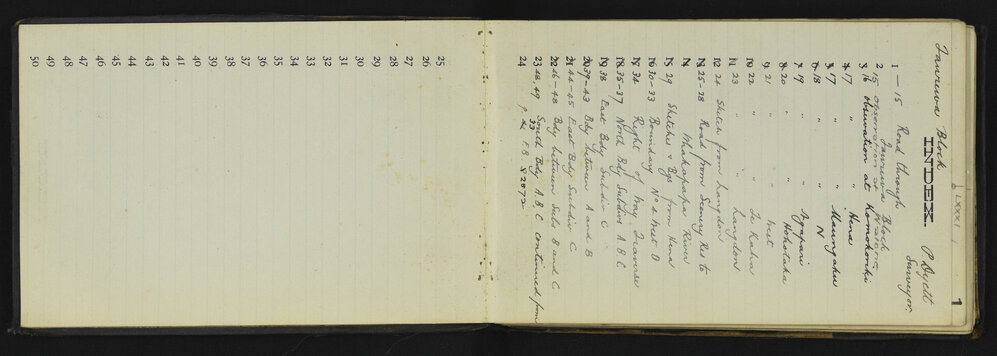 LXXXI
1
INDEX.
Tauruwa Block
P. Dyett
Surveyor.
1 — 15 Road through
Tauruwa Block
2 15 observation at
3 16 observation at Komokoriki
4 17 " Hena
5 17 " Maungaku
6 18 " N
7 19 " Ngapari
8 20 " Hohotaka
9 21 " West
10 22 " Te Kaha
11 23 " Langdon
12 24 Sketch from Langdon
13 25-28 Road from Scenery Res to
14 Whakapapa River
15 29 Sketches & Bgs from Hena
16 30-33 Boundary No 2 West B
17 34 Right of Way Traverse
18 35-37 North Bdy Subdivs A B C
19 38 East Bdy Subdiv C
20 39-43 Bdy between A and B
21 44-45 East Bdy Subdiv C
22 46-48 Bdy between Subs B and C
23 48, 49 South Bdy A, B, C continued from
24 p. 33 F.B. 2872
25
26
27
28
29
30
31
32
33
34
35
36
37
38
39
40
41
42
43
44
45
46
47
48
49
50